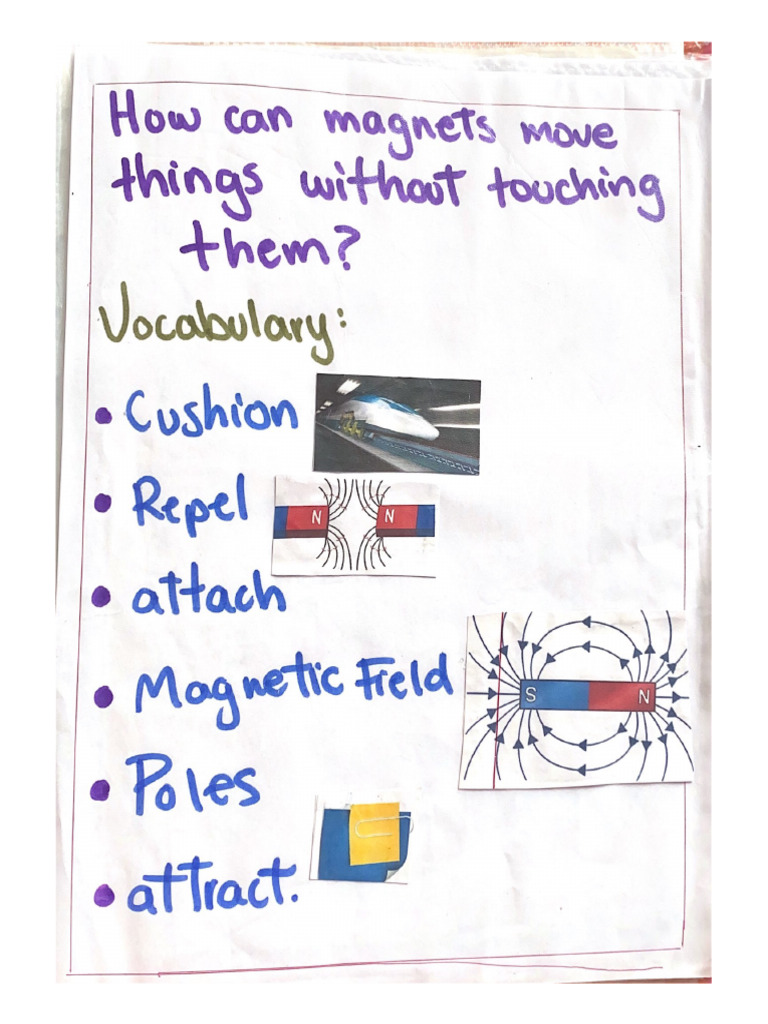 How can magnets move
things without touching
them?
Vocabulary:
• Cushion
• Repel
N N
• attach
• Magnetic Field
S N
• Poles
• attract.